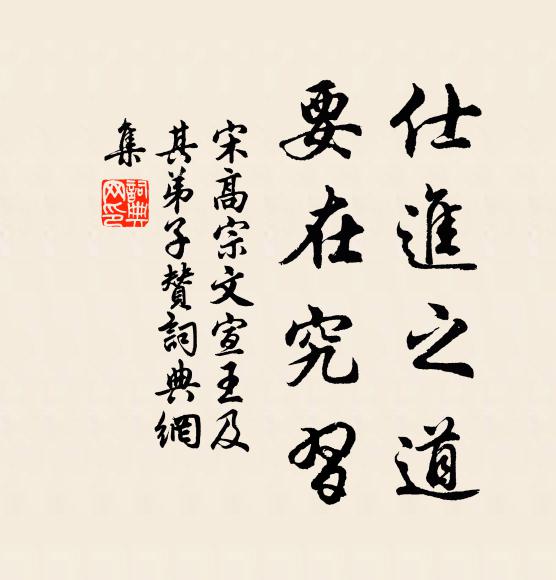 仕進之道
要在究習
宋高宗文宣王及
其弟子贊詞典網
集
詞典
网印